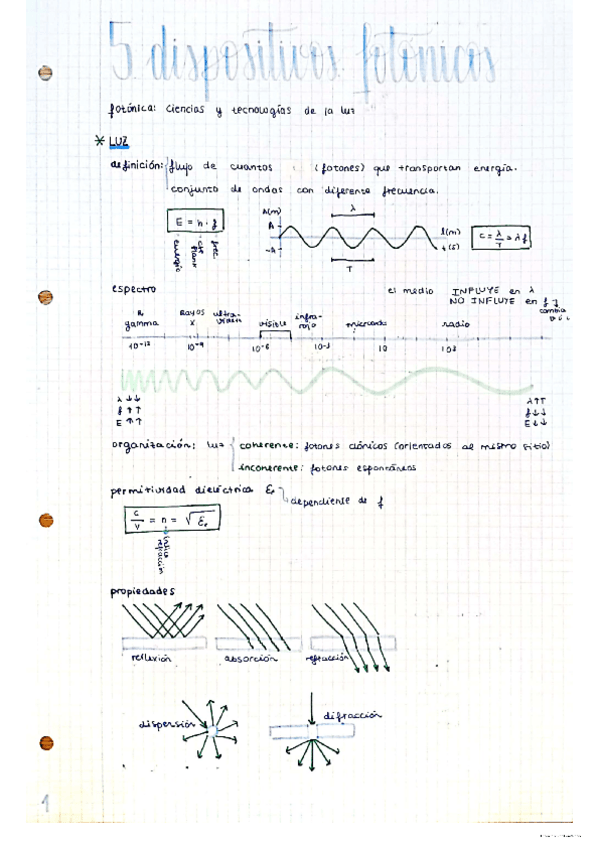 5 dispositivos fotónicos
fotónica: ciencias y tecnologías de la luz
* LUZ
definición: flujo de cuantos (fotones) que transportan energía.
conjunto de ondas con diferente frecuencia.
E = h · f
energía cte plank frec.
A(m) λ
A
-A
l(m)
t(s)
T
C = λ/T = λf
espectro
el medio INFLUYE en λ
NO INFLUYE en f
cambia
R. gamma Rayos X ultravioleta visible infrarrojo microondas radio
10⁻¹² 10⁻⁹ 10⁻⁶ 10⁻³ 10 10³
λ ↓↓
f ↑↑
E ↑↑
λ↑↑
f↓↓
E↓↓
organización: luz coherente: fotones clónicos (orientados al mismo sitio)
incoherente: fotones espontáneos
permitividad dieléctrica εr dependiente de f
c/v = n = √εr
índice refracción
propiedades
reflexión absorción refracción
dispersión difracción
1